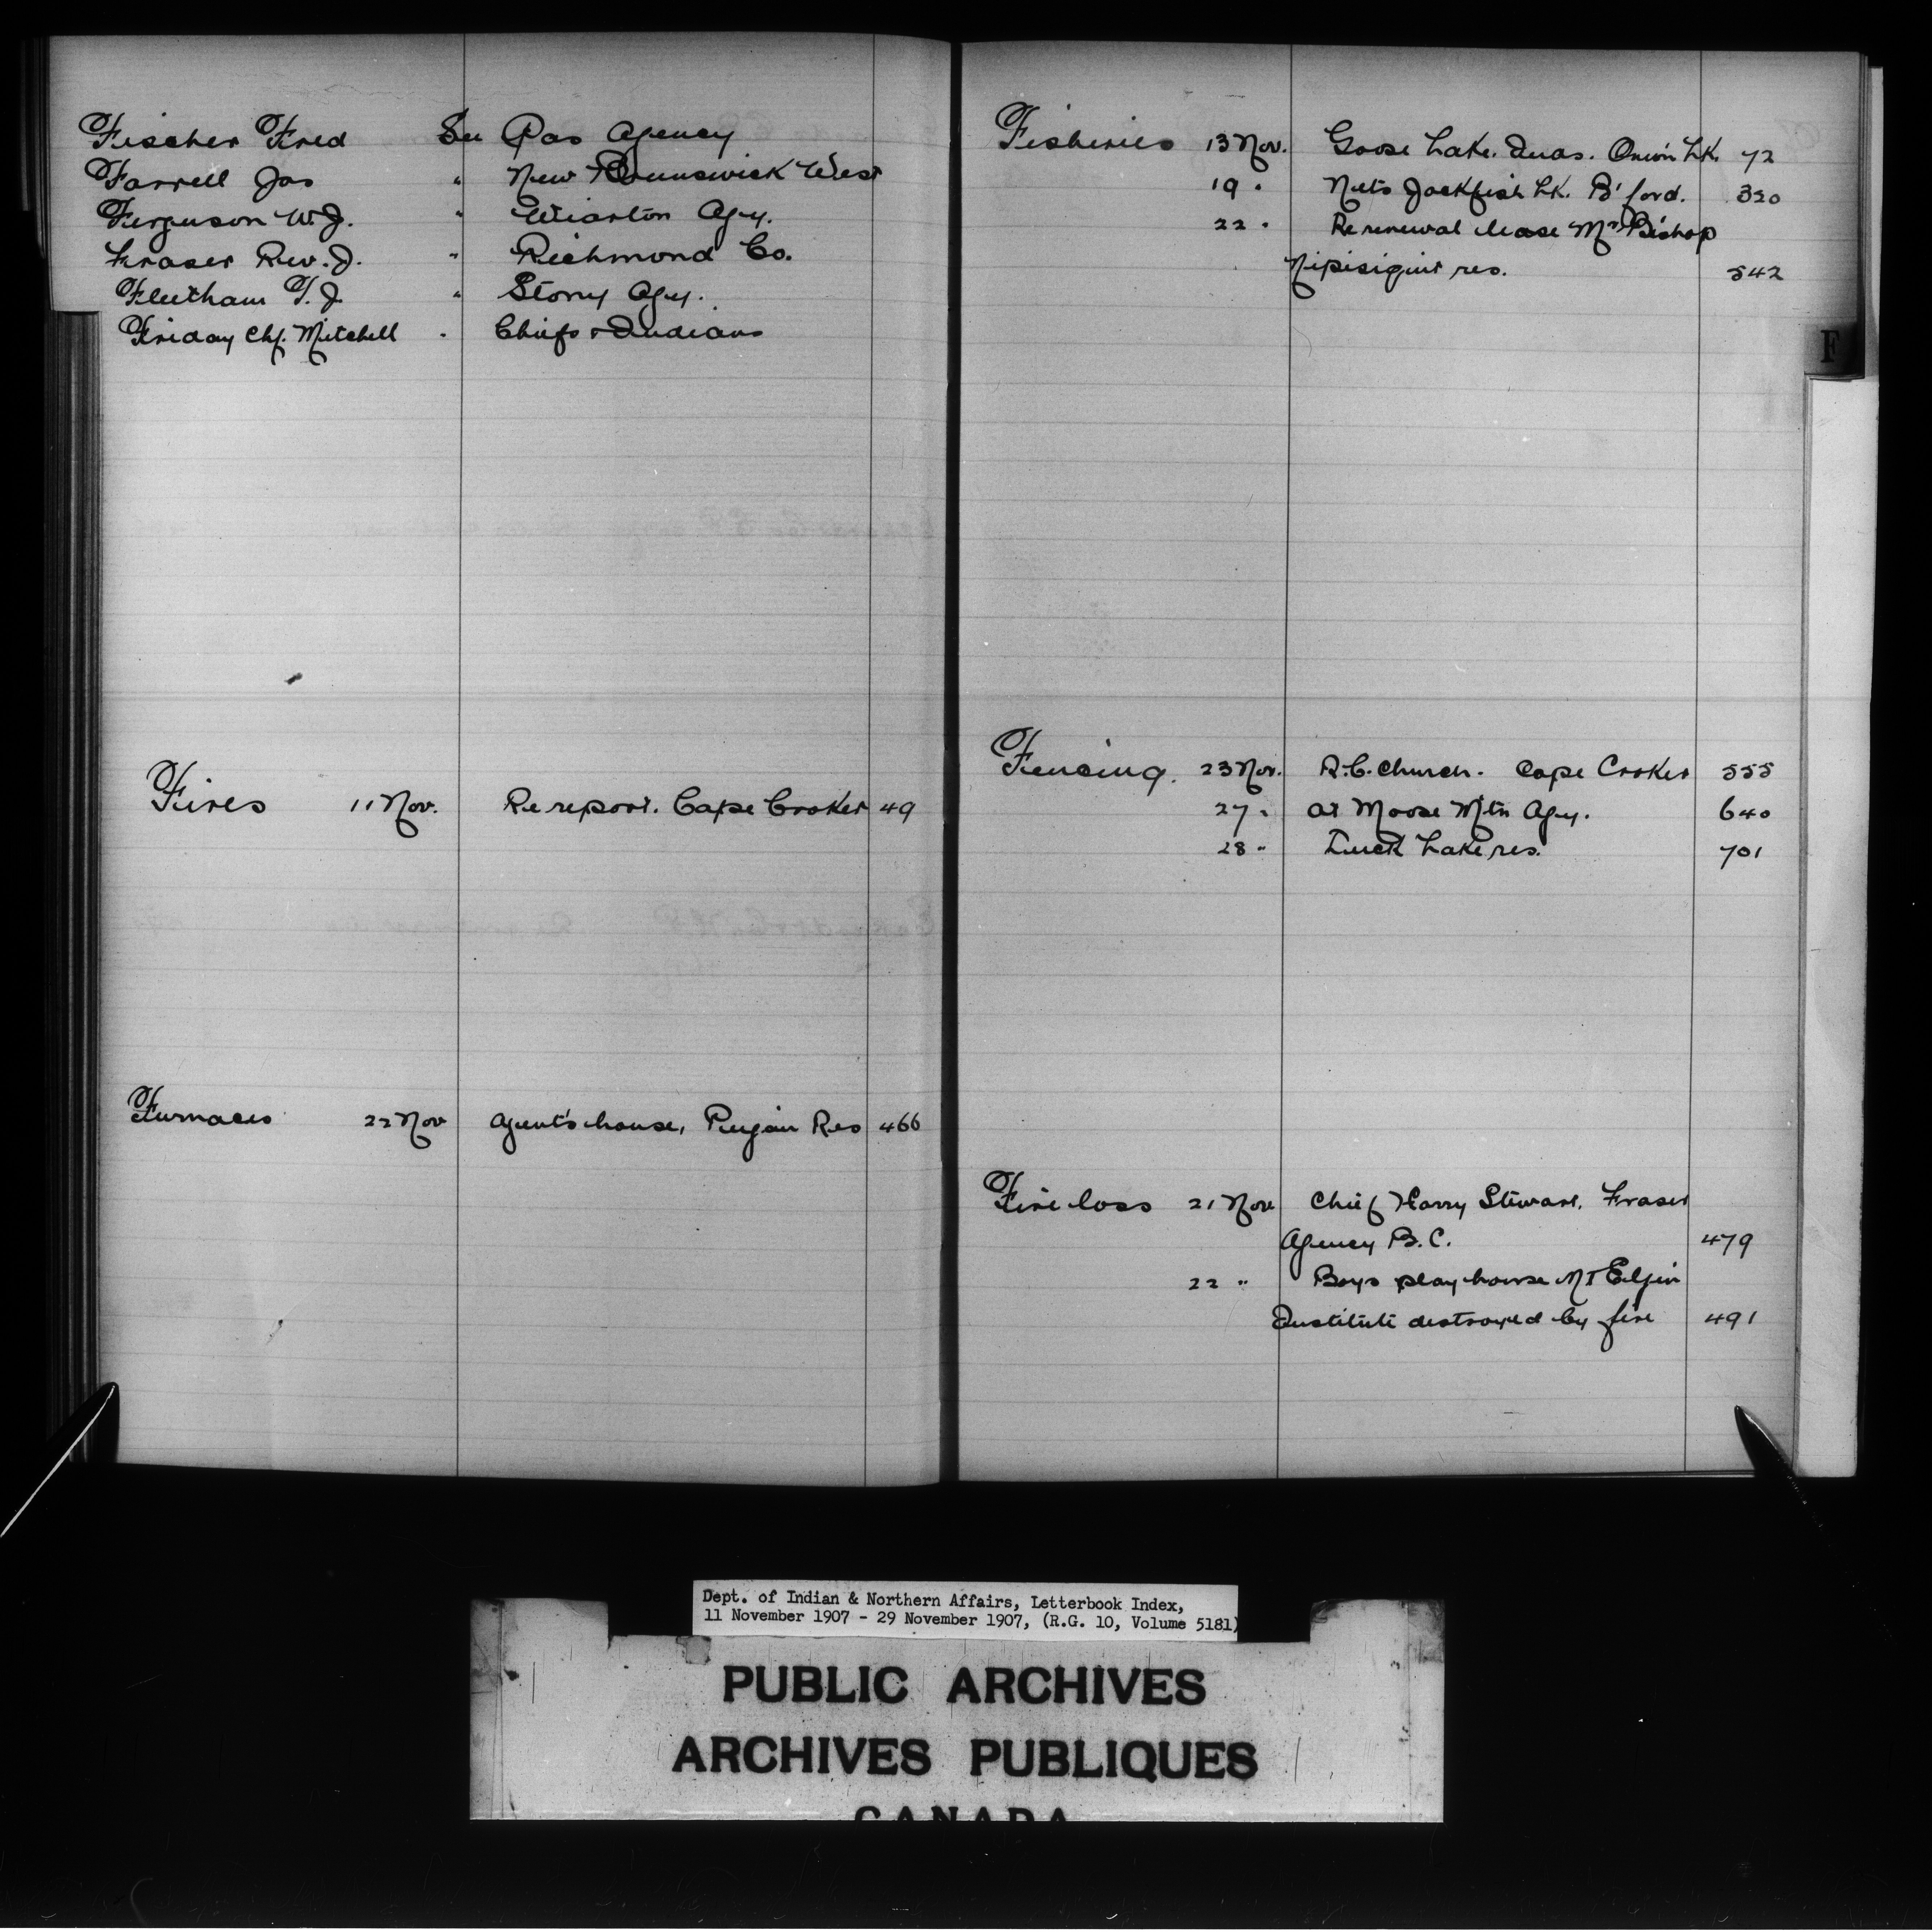 Fischer Fred See Pas Agency
Farrell Jas " New Brunswick West
Ferguson W.J. " Wiarton Agy.
Fraser Rev. J. " Richmond Co.
Fleetham T.J. " Stony Agy.
Friday Chf. Mitchell " Chiefs & Indians
Fires 11 Nov. Re report. Cape Croker 49
Furnaces 22 Nov Agent's house, Res 466
Fisheries 13 Nov. Goose Lake. Inds. Onion Lk. 72
19 " Nets Jackfish Lk. B'ford. 320
22 " Re renewal lease Mr Bishop
Nipisiguit res. 542
F
Fencing. 23 Nov. R.C. Church. Cape Croker 555
27 " At Moose Mtn Agy. 640
28 " Luck Lake res. 701
Fire loss 21 Nov Chief Harry Stewart. Fraser
Agency B.C. 479
22 " Boys play house Mt Elgin
Institute destroyed by fire 491
Dept. of Indian & Northern Affairs, Letterbook Index,
11 November 1907 - 29 November 1907, (R.G. 10, Volume 5181)
PUBLIC ARCHIVES
ARCHIVES PUBLIQUES
CANADA